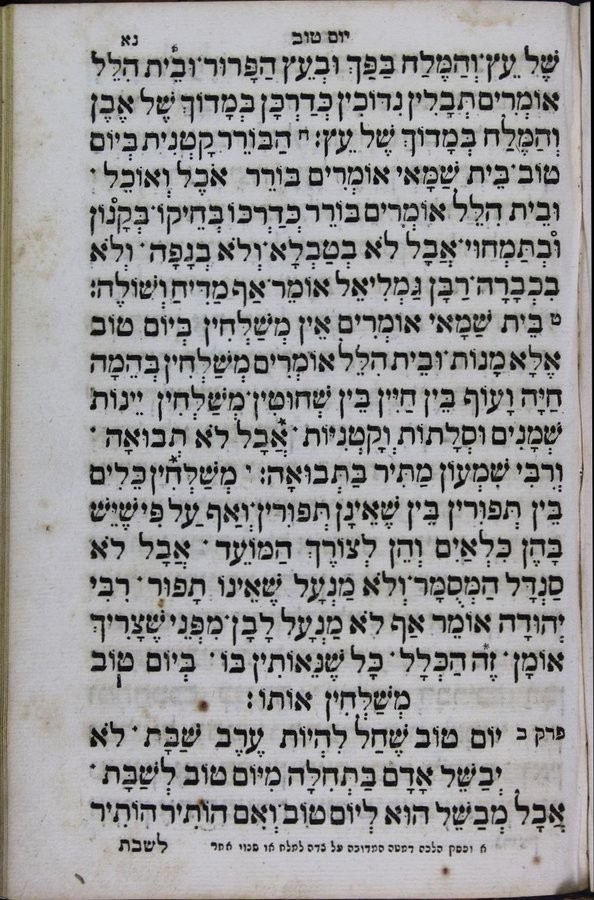 יום טוב נא
שֶׁל עֵץ וְהַמֶּלַח בַּפַּךְ וּבְעֵץ הַפָּרוּר׃ וּבֵית הִלֵּל
אוֹמְרִים תְּבָלִין נִדּוֹכִין כְּדַרְכָּן בְּמָדוֹךְ שֶׁל אֶבֶן
וְהַמֶּלַח בְּמָדוֹךְ שֶׁל עֵץ: ח הַבּוֹרֵר קִטְנִית בְּיוֹם
טוֹב׳ בֵּית שַׁמָּאי אוֹמְרִים בּוֹרֵר אֹכֶל וְאוֹכֵל ׳
וּבֵית הִלֵּל אוֹמְרִים בּוֹרֵר כְּדַרְכּוֹ בְּחֵיקוֹ׳ בְּקָנוֹן
וּבְתַּמְחוּי׳ אֲבָל לֹא בְטַבְלָא׳ וְלֹא בְנָפָה׳ וְלֹא
בִכְבָרָה׳ רַבָּן גַּמְלִיאֵל אוֹמֵר אַף מַדִּיחַ וְשׁוֹלֶה:
ט בֵּית שַׁמָּאי אוֹמְרִים אֵין מְשַׁלְּחִין בְּיוֹם טוֹב
אֶלָּא מָנוֹת׳ וּבֵית הִלֵּל אוֹמְרִים מְשַׁלְּחִין בְּהֵמָה
חַיָּה וָעוֹף בֵּין חַיִּין בֵּין שְׁחוּטִין׳ מְשַׁלְּחִין יֵינוֹת
שְׁמָנִים וּסְלָתוֹת וְקִטְנִיּוֹת ׳ אֲבָל לֹא תְבוּאָה ׳
וְרִבִּי שִׁמְעוֹן מַתִּיר בַּתְּבוּאָה: י מְשַׁלְּחִין כֵּלִים
בֵּין תְּפוּרִין בֵּין שֶׁאֵינָן תְּפוּרִין׳ וְאַף עַל פִּי שֶׁיֵּשׁ
בָּהֶן כִּלְאַיִם וְהֵן לְצוֹרֶךְ הַמּוֹעֵד ׳ אֲבָל לֹא
סַנְדָּל הַמְּסֻמָּר׳ וְלֹא מִנְעָל שֶׁאֵינוֹ תָפוּר׳ רִבִּי
יְהוּדָה אוֹמֵר אַף לֹא מִנְעָל לָבָן׳ מִפְּנֵי שֶׁצָּרִיךְ
אוֹמָן׳ זֶה הַכְּלָל׳ כָּל שֶׁנֵּאוֹתִין בּוֹ ׳ בְּיוֹם טוֹב
מְשַׁלְּחִין אוֹתוֹ:
פרק ב יוֹם טוֹב שֶׁחָל לִהְיוֹת עֶרֶב שַׁבָּת ׳ לֹא
יְבַשֵּׁל אָדָם בַּתְּחִלָּה מִיּוֹם טוֹב לְשַׁבָּת ׳
אֲבָל מְבַשֵּׁל הוּא לְיוֹם טוֹב׳ וְאִם הוֹתִיר הוֹתִיר
לשבת